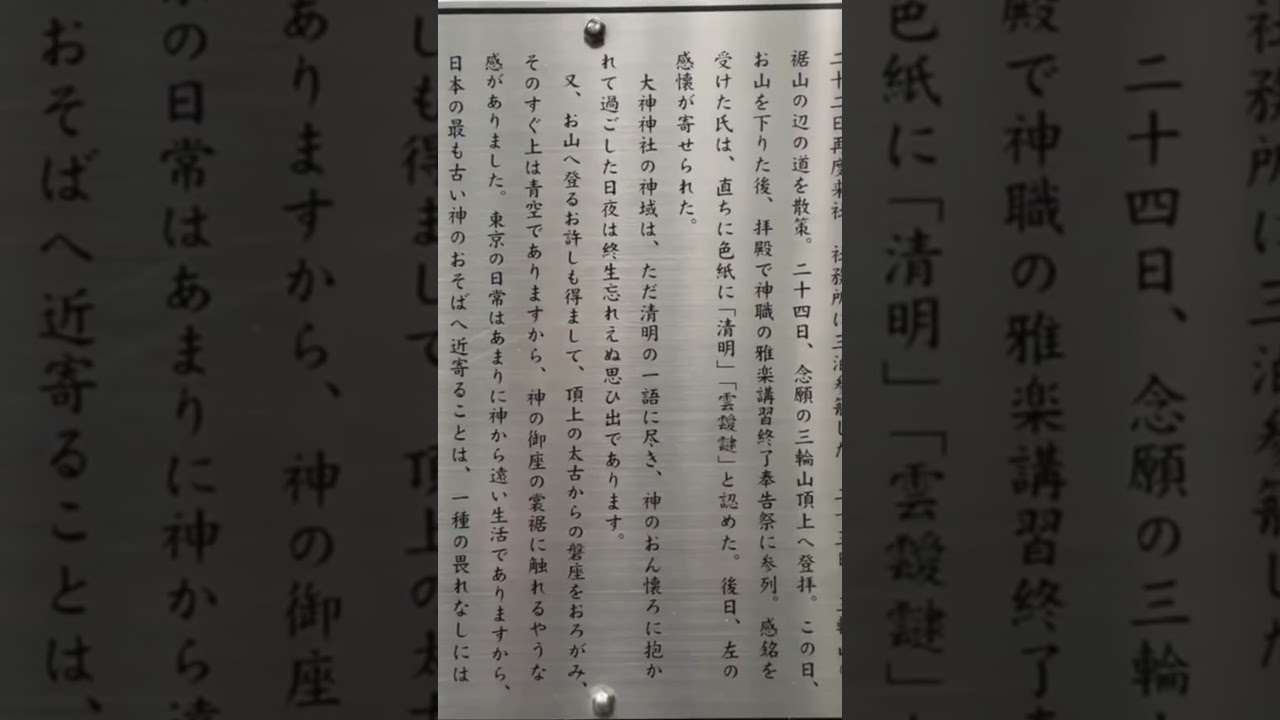 二十二日再度来社 社務所に三泊参籠した 二十三日 三輪山の
裾山の辺の道を散策。二十四日、念願の三輪山頂上へ登拝。この日、
お山を下りた後、拝殿で神職の雅楽講習終了奉告祭に参列。感銘を
受けた氏は、直ちに色紙に「清明」「雲靉靆」と認めた。後日、左の
感懐が寄せられた。
大神神社の神域は、ただ清明の一語に尽き、神のおん懐ろに抱か
れて過ごした日夜は終生忘れえぬ思ひ出であります。
又、お山へ登るお許しも得まして、頂上の太古からの磐座をおろがみ、
そのすぐ上は青空でありますから、神の御座の裳裾に触れるやうな
感がありました。東京の日常はあまりに神から遠い生活でありますから、
日本の最も古い神のおそばへ近寄ることは、一種の畏れなしには